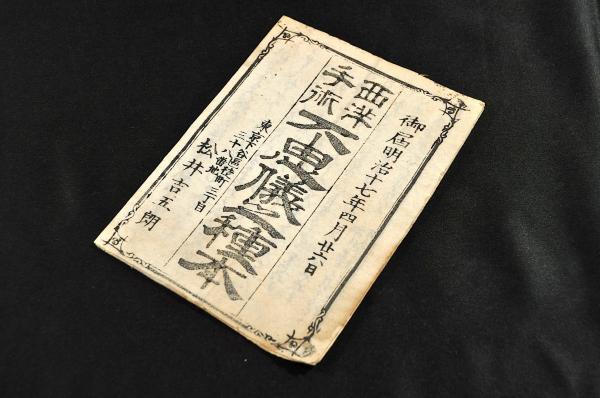 御届明治十七年四月廿六日
西洋
手術
不思儀之種本
東京下谷區徒町三丁目
三十八番地
松井吉五朗